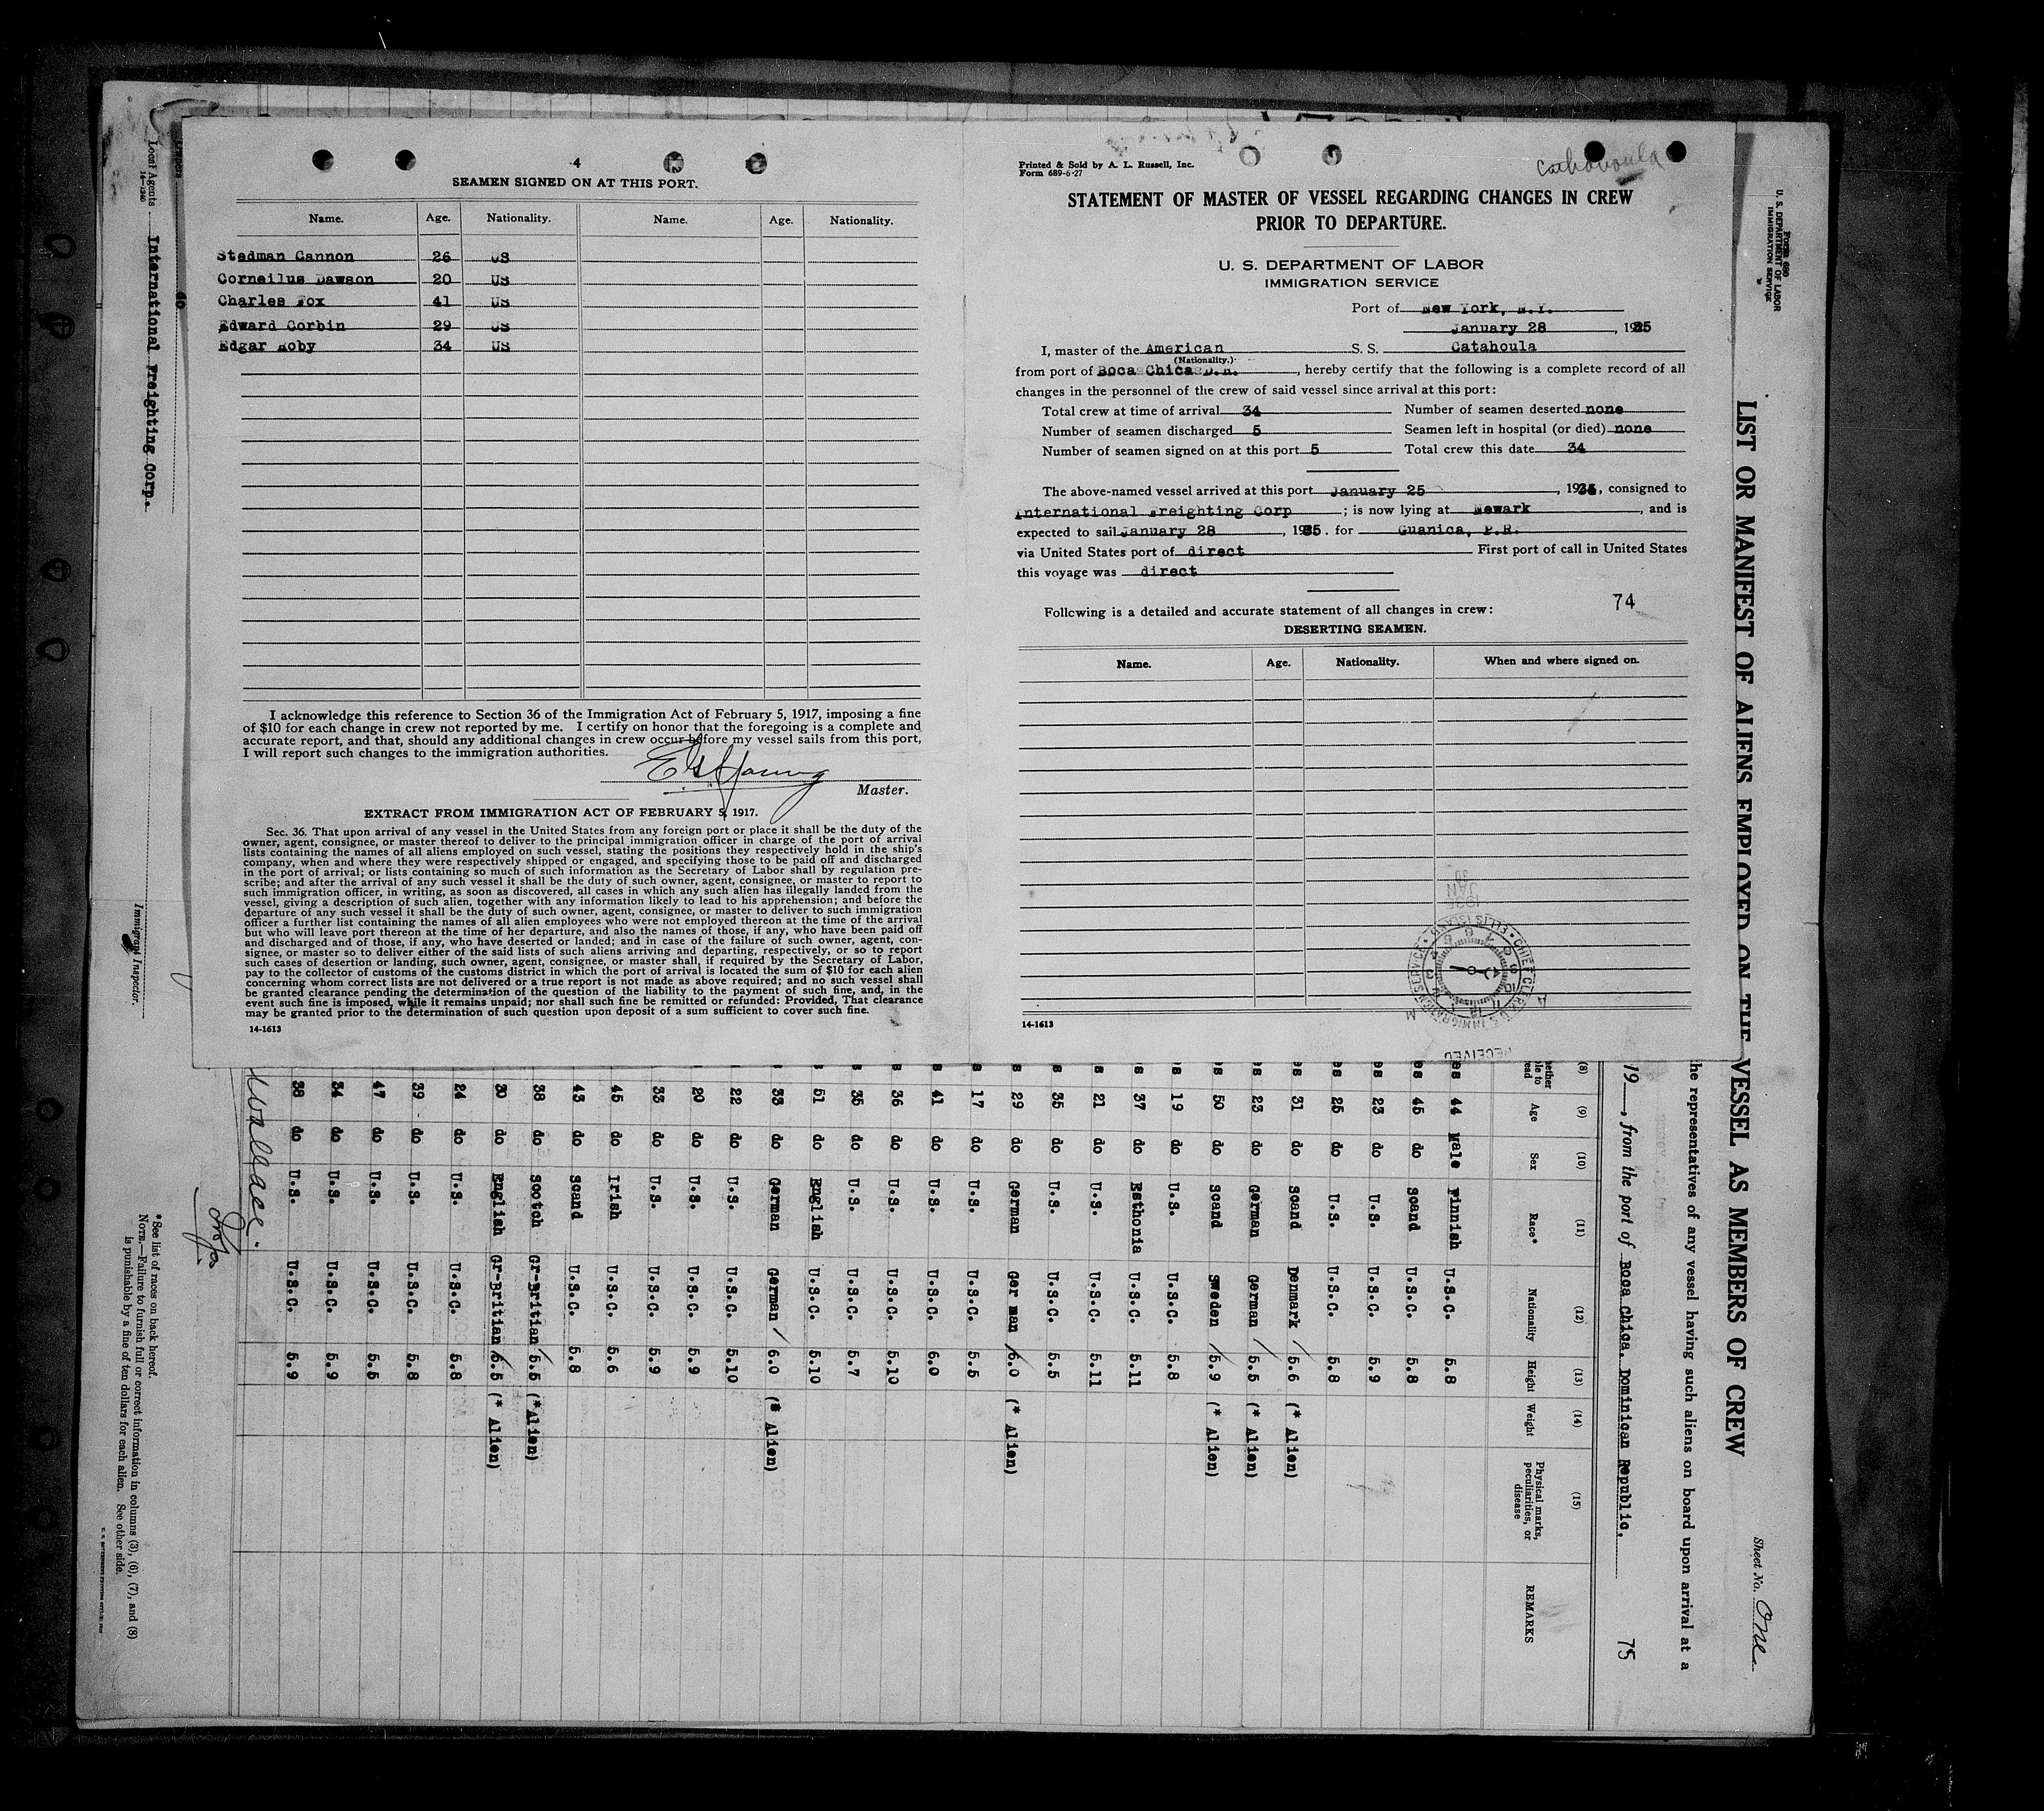 4
SEAMEN SIGNED ON AT THIS PORT.
Name. Age. Nationality. Name. Age. Nationality.
Stedman Cannon 26 US
Corneilus Dawson 20 US
Charles Fox 41 US
Edward Corbin 29 US
Edgar Roby 34 US
I acknowledge this reference to Section 36 of the Immigration Act of February 5, 1917, imposing a fine
of $10 for each change in crew not reported by me. I certify on honor that the foregoing is a complete and
accurate report, and that, should any additional changes in crew occur before my vessel sails from this port,
I will report such changes to the immigration authorities.
Young
Master.
EXTRACT FROM IMMIGRATION ACT OF FEBRUARY 5, 1917.
Sec. 36. That upon arrival of any vessel in the United States from any foreign port or place it shall be the duty of the
owner, agent, consignee, or master thereof to deliver to the principal immigration officer in charge of the port of arrival
lists containing the names of all aliens employed on such vessel, stating the positions they respectively hold in the ship's
company, when and where they were respectively shipped or engaged, and specifying those to be paid off and discharged
in the port of arrival; or lists containing so much of such information as the Secretary of Labor shall by regulation pre-
scribe; and after the arrival of any such vessel it shall be the duty of such owner, agent, consignee, or master to report to
such immigration officer, in writing, as soon as discovered, all cases in which any such alien has illegally landed from the
vessel, giving a description of such alien, together with any information likely to lead to his apprehension; and before the
departure of any such vessel it shall be the duty of such owner, agent, consignee, or master to deliver to such immigration
officer a further list containing the names of all alien employees who were not employed thereon at the time of the arrival
but who will leave port thereon at the time of her departure, and also the names of those, if any, who have been paid off
and discharged and of those, if any, who have deserted or landed; and in case of the failure of such owner, agent, con-
signee, or master so to deliver either of the said lists of such aliens arriving and departing, respectively, or so to report
such cases of desertion or landing, such owner, agent, consignee, or master shall, if required by the Secretary of Labor,
pay to the collector of customs of the customs district in which the port of arrival is located the sum of $10 for each alien
concerning whom correct lists are not delivered or a true report is not made as above required; and no such vessel shall
be granted clearance pending the determination of the question of the liability to the payment of such fine, and, in the
event such fine is imposed, while it remains unpaid; nor shall such fine be remitted or refunded: Provided, That clearance
may be granted prior to the determination of such question upon deposit of a sum sufficient to cover such fine.
14-1613
Printed & Sold by A. L. Russell, Inc.
Form 689-6-27
Catahoula
STATEMENT OF MASTER OF VESSEL REGARDING CHANGES IN CREW
PRIOR TO DEPARTURE.
U. S. DEPARTMENT OF LABOR
IMMIGRATION SERVICE
Port of New York, N.Y.
January 28, 1935
I, master of the American S. S. Catahoula
(Nationality.)
from port of Boca Chica D.R., hereby certify that the following is a complete record of all
changes in the personnel of the crew of said vessel since arrival at this port:
Total crew at time of arrival 34 Number of seamen deserted none
Number of seamen discharged 5 Seamen left in hospital (or died) none
Number of seamen signed on at this port 5 Total crew this date 34
The above-named vessel arrived at this port January 25, 1935, consigned to
International Freighting Corp; is now lying at Newark, and is
expected to sail January 28, 1935. for Guanica, P.R.
via United States port of direct First port of call in United States
this voyage was direct
Following is a detailed and accurate statement of all changes in crew: 74
DESERTING SEAMEN.
Name. Age. Nationality. When and where signed on.
14-1613
CHIEF CLERK U.S. IMMIGRATION SERVICE ELLIS ISLAND
RECEIVED
Form 680
U. S. DEPARTMENT OF LABOR
IMMIGRATION SERVICE
LIST OR MANIFEST OF ALIENS EMPLOYED ON THE VESSEL AS MEMBERS OF CREW
Sheet No. One
he representatives of any vessel having such aliens on board upon arrival at a
19 , from the port of Boca Chica, Dominican Republic. 75
(8) (9) (10) (11) (12) (13) (14) (15)
Age Sex Race* Nationality Height Weight Physical marks, peculiarities, or disease REMARKS
es 44 Male Finnish U.S.C. 5.8
es 45 do Scand U.S.C. 5.8
es 23 do U.S. U.S.C. 5.9
es 25 do U.S. U.S.C. 5.8
es 31 do Scand Denmark / 5.6 (* Alien)
es 23 do German German / 5.5 (* Alien)
es 50 do Scand Sweden / 5.9 (* Alien)
s 19 do U.S. U.S.C. 5.8
s 37 do Esthonia U.S.C. 5.11
s 21 do U.S. U.S.C. 5.11
s 35 do U.S. U.S.C. 5.5
s 29 do German Ger man / 6.0 (* Alien)
s 17 do U.S. U.S.C. 5.5
s 41 do U.S. U.S.C. 6.0
s 36 do U.S. U.S.C. 5.10
s 35 do U.S. U.S.C. 5.7
s 51 do English U.S.C. 5.10
33 do German German / 6.0 (* Alien)
22 do U.S. U.S.C. 5.10
20 do U.S. U.S.C. 5.9
33 do U.S. U.S.C. 5.9
45 do Irish U.S.C. 5.6
43 do Scand U.S.C. 5.8
38 do Scotch Gr-Britian / 5.5 (*Alien)
30 do English Gr-Britian / 5.5 (* Alien)
24 do U.S. U.S.C. 5.8
39 do U.S. U.S.C. 5.8
47 do U.S. U.S.C. 5.5
34 do U.S. U.S.C. 5.9
38 do U.S. U.S.C. 5.9
Wallace.
*See list of races on back hereof.
NOTE.—Failure to furnish full or correct information in columns (3), (6), (7), and (8)
is punishable by a fine of ten dollars for each alien. See other side.
Immigrant Inspector.
do
Local Agents International Freighting Corp.
14-1240